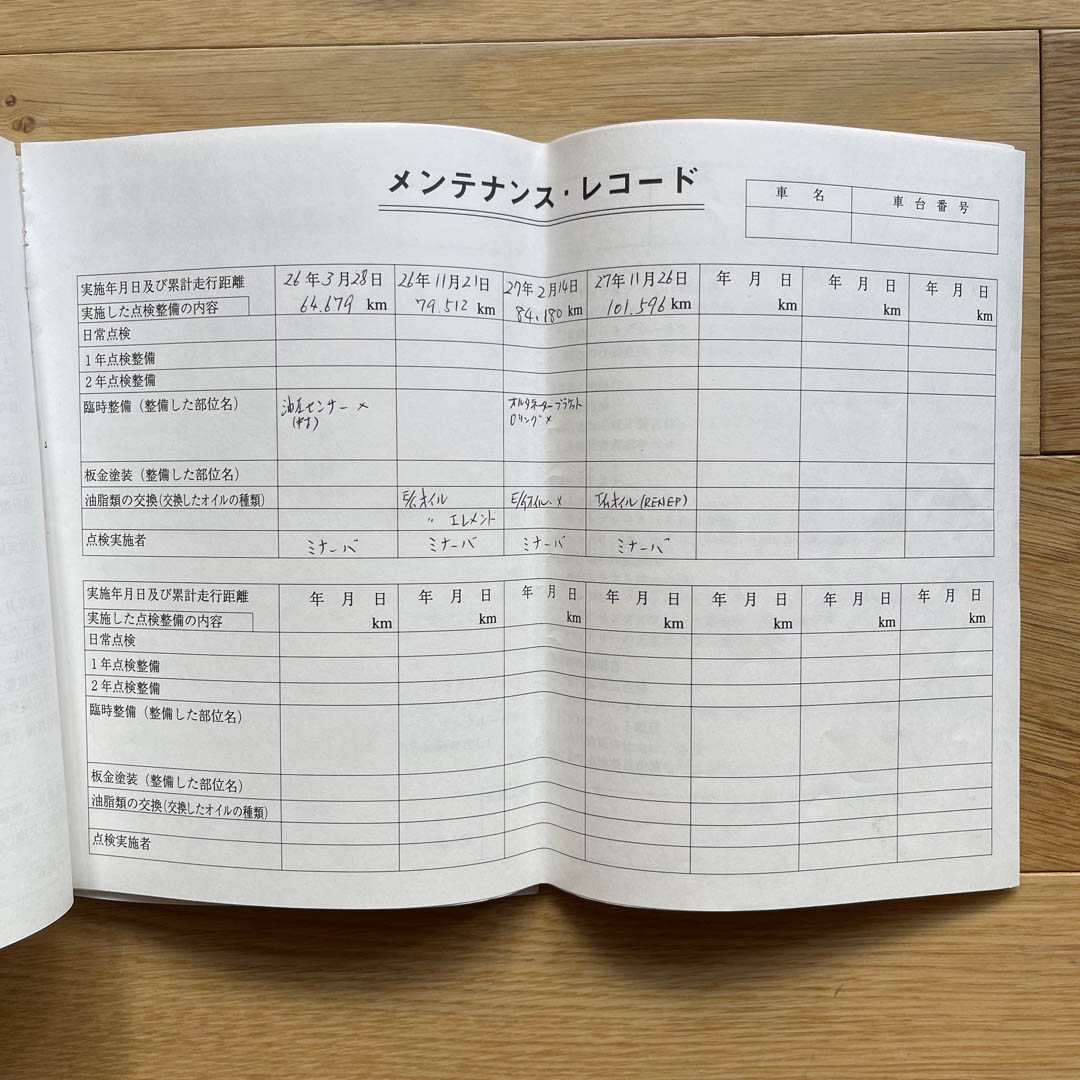 メンテナンス・レコード
車名 車台番号
実施年月日及び累計走行距離 26年3月28日 26年11月21日 27年2月14日 27年11月26日 年月日 年月日 年月日
実施した点検整備の内容 64.679 km 79.512 km 84.180 km 101.596 km km km km
日常点検
1年点検整備
2年点検整備
臨時整備(整備した部位名) 油圧センサー× オルタネーターブラケット
Oリング×
板金塗装(整備した部位名)
油脂類の交換(交換したオイルの種類) E/gオイル E/gオイル× E/gオイル(RENEP)
〃 エレメント
点検実施者 ミナーバ ミナーバ ミナーバ ミナーバ
実施年月日及び累計走行距離 年月日 年月日 年月日 年月日 年月日 年月日
実施した点検整備の内容 km km km km km km
日常点検
1年点検整備
2年点検整備
臨時整備(整備した部位名)
板金塗装(整備した部位名)
油脂類の交換(交換したオイルの種類)
点検実施者